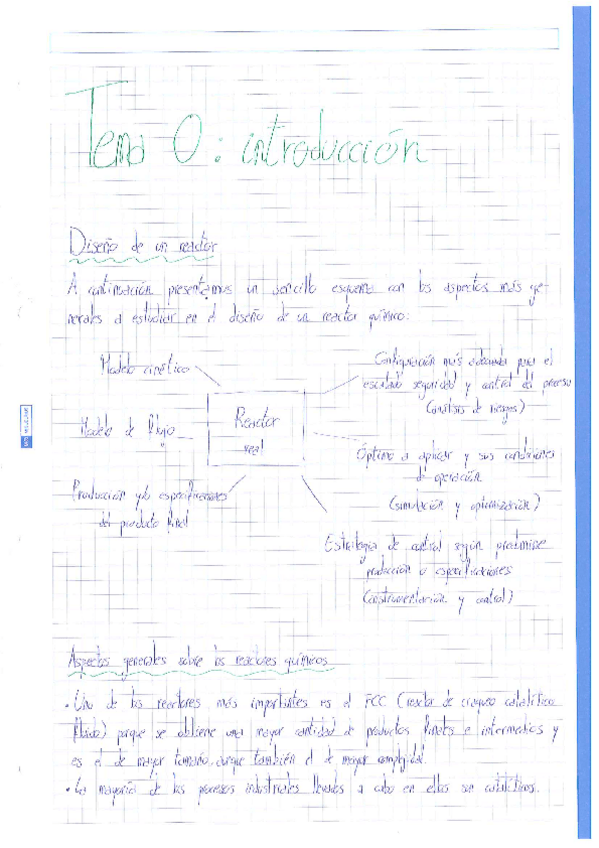 Tema 0: introducción
Diseño de un reactor
A continuación presentamos un sencillo esquema con los aspectos más ge-
nerales a estudiar en el diseño de un reactor químico:
Modelo cinético
Configuración más adecuada para el
escalado seguridad y control del proceso
(análisis de riesgos)
Modelo de flujo
Reactor
real
Óptimo a aplicar y sus condiciones
de operación
(simulación y optimización)
Producción y/o especificaciones
del producto final
Estrategia de control según
producción o especificaciones
(instrumentación y control)
Aspectos generales sobre los reactores químicos
• Uno de los reactores más importantes es el FCC (reactor de craqueo catalítico
fluido) porque se obtiene una mayor cantidad de productos finales e intermedios y
es el de mayor tamaño, aunque también el de mayor complejidad.
• La mayoría de los procesos industriales llevados a cabo en ellos son catalíticos.